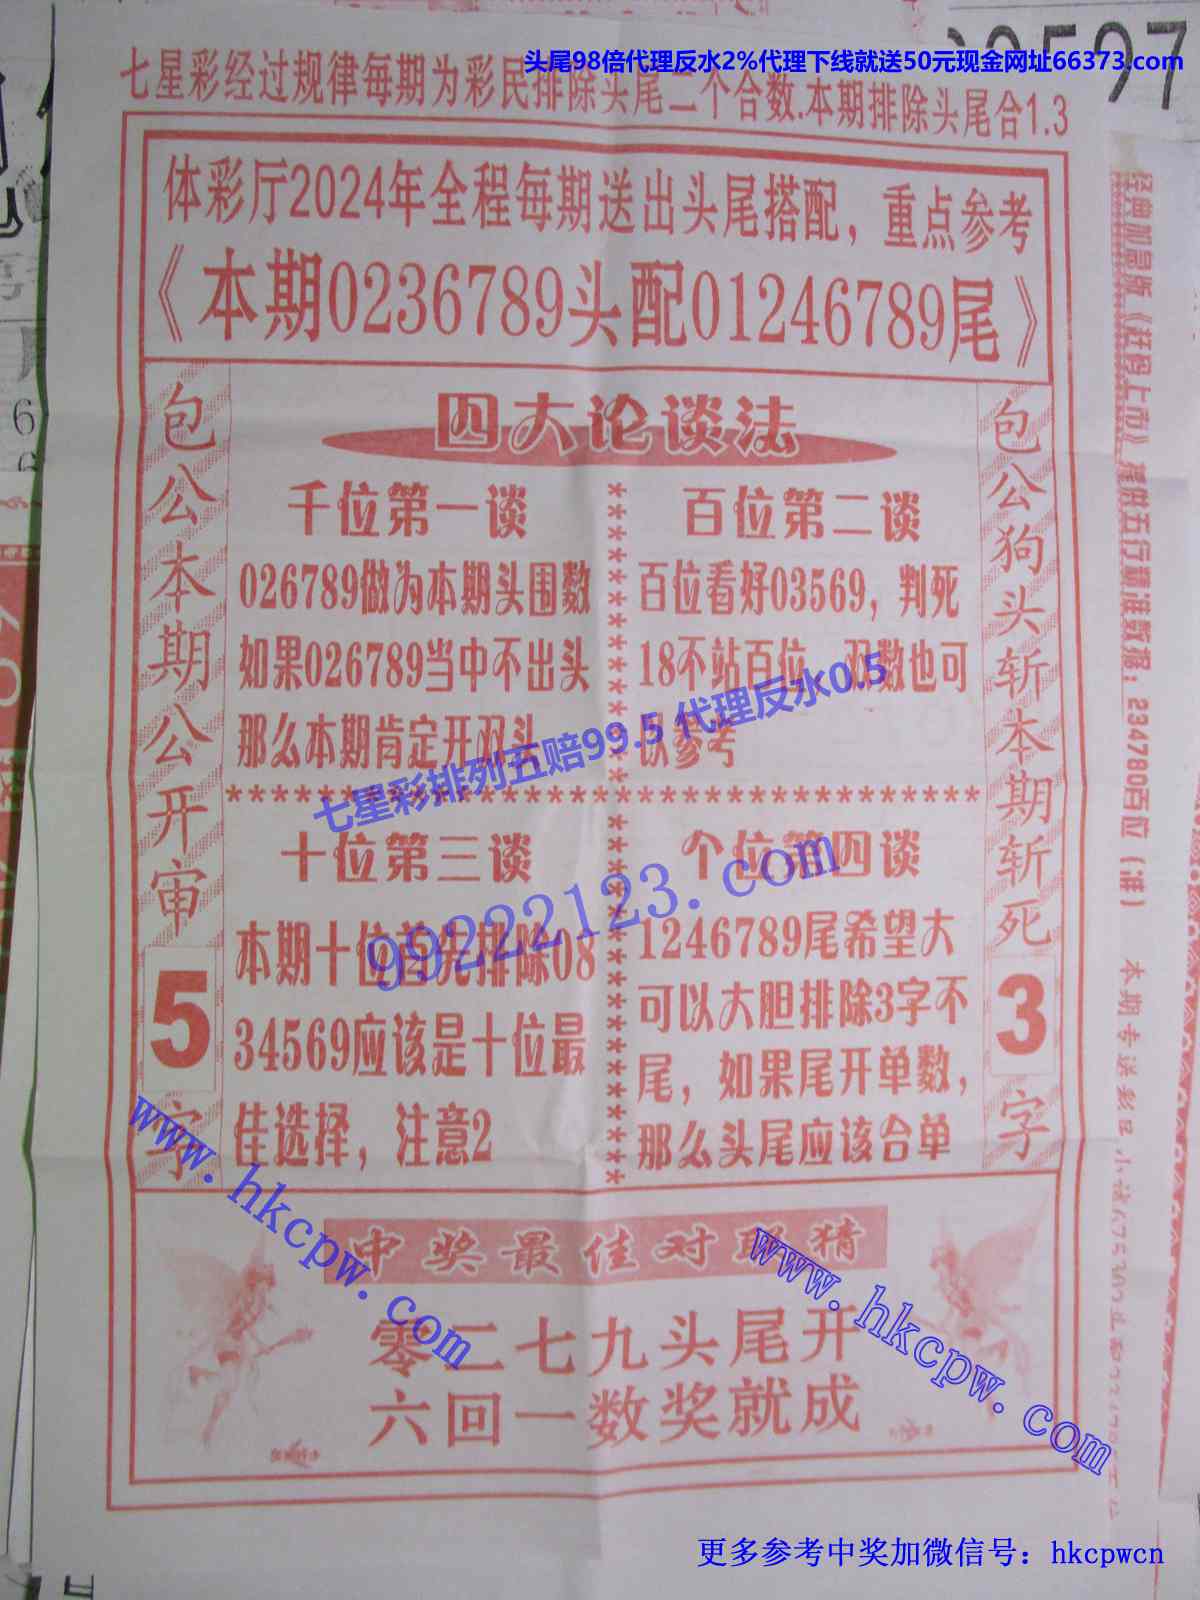 头尾98倍代理反水2%代理下线就送50元现金网址66373.com
七星彩经过规律每期为彩民排除头尾二个合数.本期排除头尾合1.3
体彩厅2024年全程每期送出头尾搭配，重点参考
《本期0236789头配01246789尾》
包公本期公开审
5
字
四大论谈法
千位第一谈
026789做为本期头围数
如果026789当中不出头
那么本期肯定开双头
百位第二谈
百位看好03569，判死
18不站百位，双数也可
以参考
七星彩排列五赔99.5 代理反水0.5
十位第三谈
本期十位首先排除08
34569应该是十位最
佳选择，注意2
个位第四谈
1246789尾希望大
可以大胆排除3字不
尾，如果尾开单数，
那么头尾应该合单
99222123.com
包公狗头斩本期斩死
3
字
中奖最佳对联猜
零二七九头尾开
六回一数奖就成
www.hkcpw.com
www.hkcpw.com
提供五行霸准数据：234780百位（准）
本期专送彩民
更多参考中奖加微信号：hkcpwcn